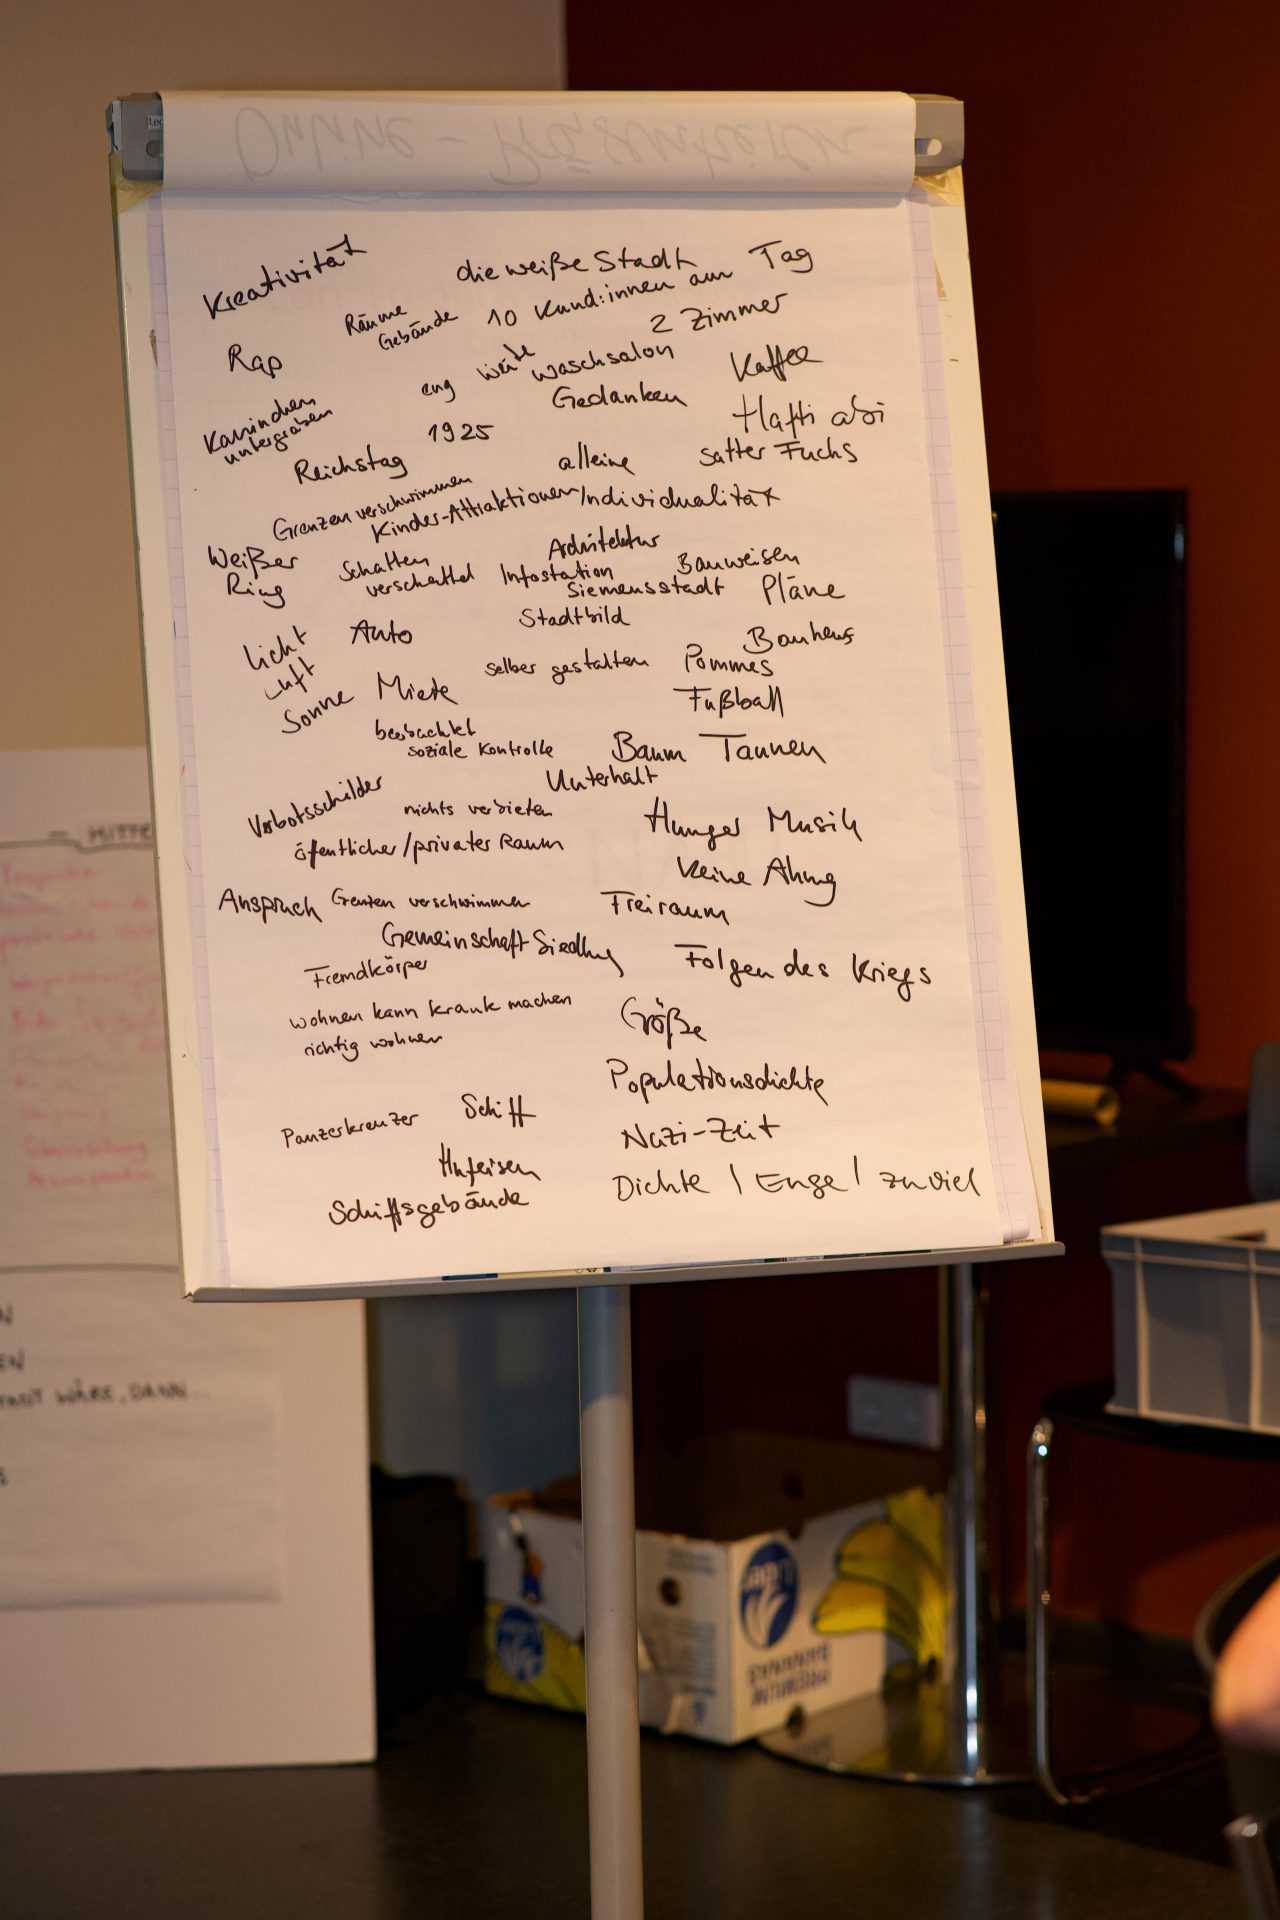 Online - Präsentieren
Kreativität
die weiße Stadt
Räume
Gebäude
10 Kund:innen am Tag
2 Zimmer
Rap
eng
Weite
Waschsalon
Kaffee
Kaninchen
untergraben
Gedanken
1925
Hafti abi
Reichstag
alleine
satter Fuchs
Grenzen verschwimmen
Kinder-Attraktionen
Individualität
Weißer
Ring
Schatten
verschattet
Architektur
Infostation
Bauweisen
Siemensstadt
Pläne
Stadtbild
Licht
Luft
Sonne
Auto
Bauhaus
selber gestalten
Pommes
Miete
Fußball
beobachtet
soziale Kontrolle
Baum
Tannen
Unterhalt
Verbotsschilder
nichts verbieten
Hunger
Musik
öffentlicher/privater Raum
Keine Ahnung
Anspruch
Grenzen verschwimmen
Freiraum
Gemeinschaft Siedlung
Fremdkörper
Folgen des Kriegs
wohnen kann krank machen
richtig wohnen
Größe
Populationsdichte
Panzerkreuzer
Schiff
Nazi-Zeit
Hufeisen
Schiffsgebäude
Dichte / Enge / zu viel
MITTE
WÄRE, DANN
PREMIUM
BANANAS